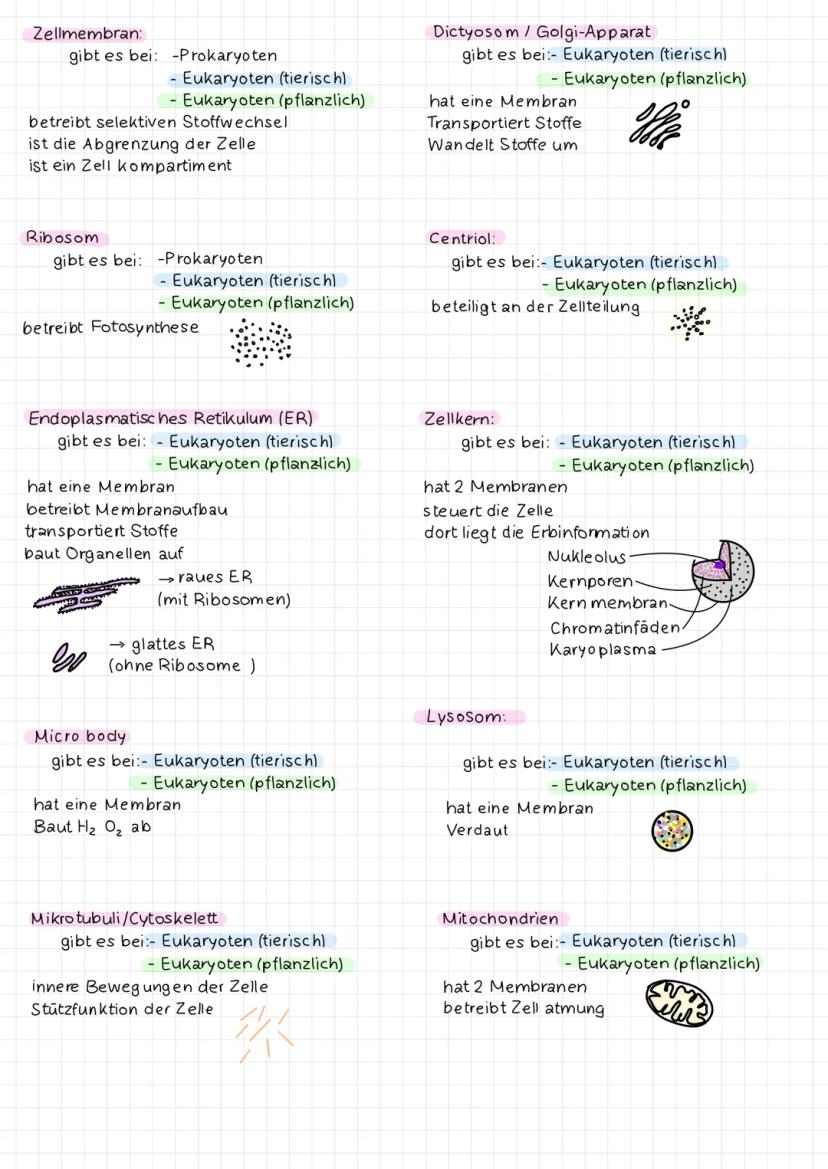 Zellmembran:
gibt es bei: -Prokaryoten
- Eukaryoten (tierisch)
- Eukaryoten (pflanzlich)
betreibt selektiven Stoffwechsel
ist die Abgrenzung der Zelle
ist ein Zell kompartiment
Dictyosom / Golgi-Apparat
gibt es bei:- Eukaryoten (tierisch)
- Eukaryoten (pflanzlich)
hat eine Membran
Transportiert Stoffe
Wandelt Stoffe um
Ribosom
gibt es bei: -Prokaryoten
- Eukaryoten (tierisch)
- Eukaryoten (pflanzlich)
betreibt Fotosynthese
Centriol:
gibt es bei:- Eukaryoten (tierisch)
- Eukaryoten (pflanzlich)
beteiligt an der Zellteilung
Endoplasmatisches Retikulum (ER)
gibt es bei: - Eukaryoten (tierisch)
- Eukaryoten (pflanzlich)
hat eine Membran
betreibt Membranaufbau
transportiert Stoffe
baut Organellen auf
→ raues ER
(mit Ribosomen)
→ glattes ER
(ohne Ribosome )
Zellkern:
gibt es bei: - Eukaryoten (tierisch)
- Eukaryoten (pflanzlich)
hat 2 Membranen
steuert die Zelle
dort liegt die Erbinformation
Nukleolus
Kernporen
Kern membran
Chromatinfäden
Karyoplasma
Micro body
gibt es bei:- Eukaryoten (tierisch)
- Eukaryoten (pflanzlich)
hat eine Membran
Baut H₂ O₂ ab
Lysosom:
gibt es bei:- Eukaryoten (tierisch)
- Eukaryoten (pflanzlich)
hat eine Membran
Verdaut
Mikrotubuli/Cytoskelett
gibt es bei:- Eukaryoten (tierisch)
- Eukaryoten (pflanzlich)
innere Bewegungen der Zelle
Stützfunktion der Zelle
Mitochondrien
gibt es bei:- Eukaryoten (tierisch)
- Eukaryoten (pflanzlich)
hat 2 Membranen
betreibt Zell atmung